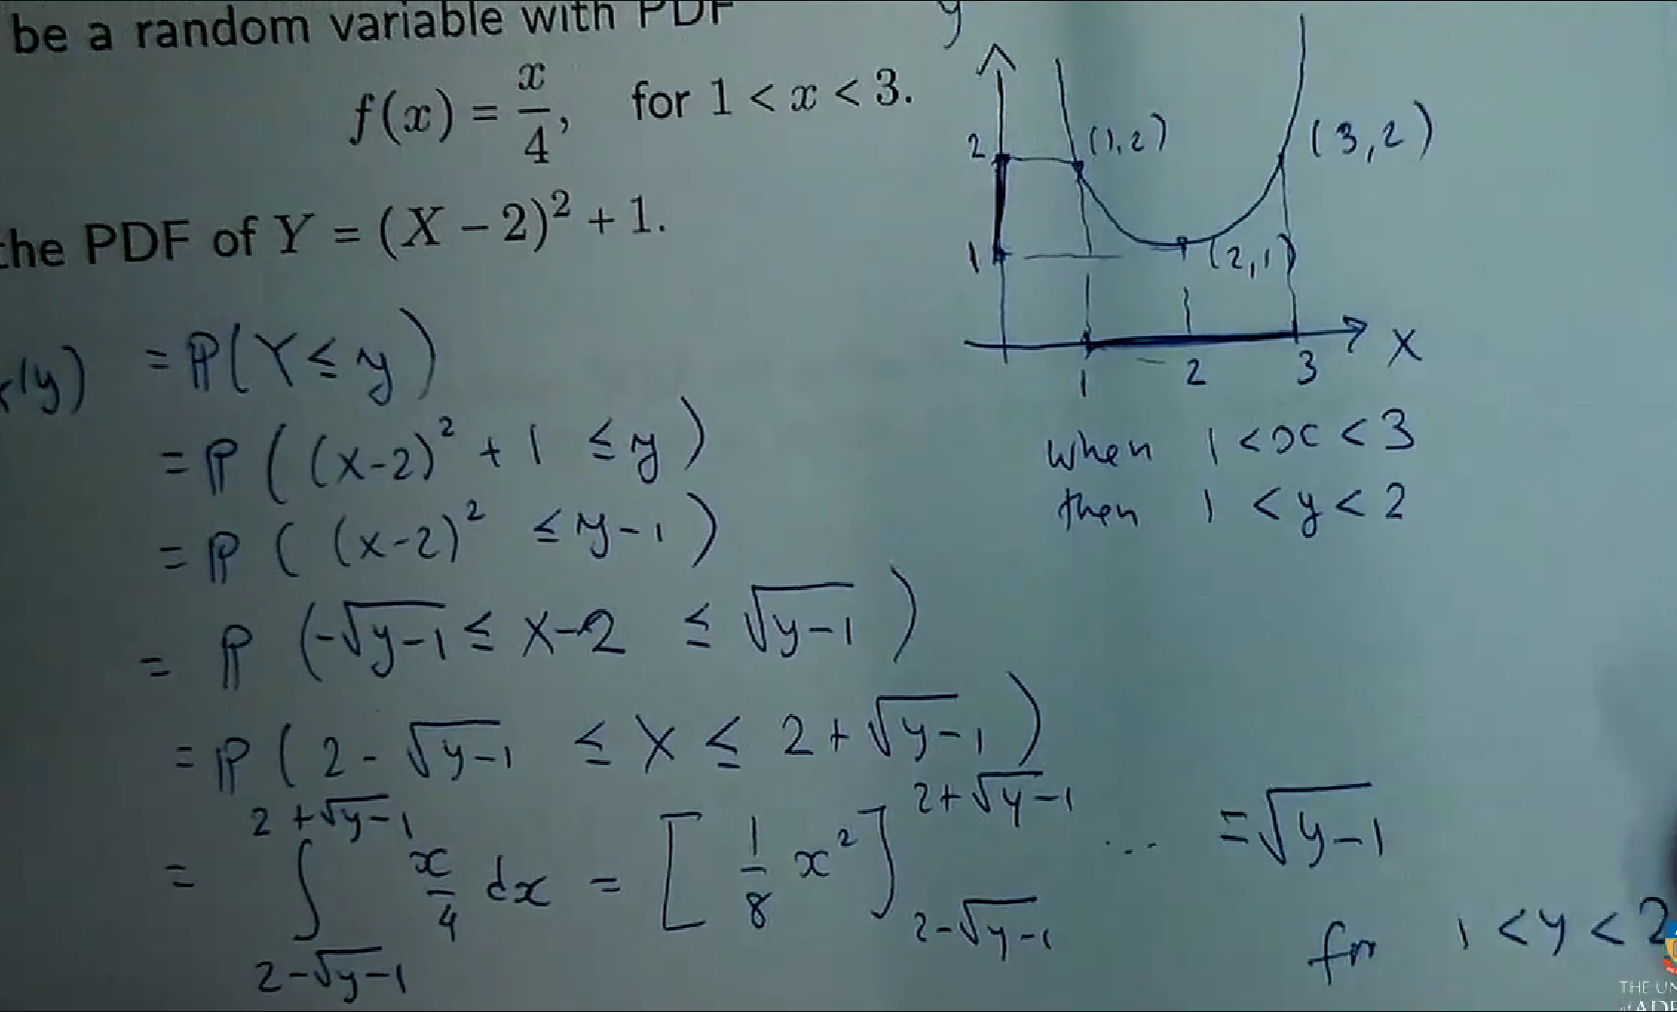 be a random variable with PDF
f(x) = x/4, for 1 < x < 3.
the PDF of Y = (X − 2)² + 1.
y
2
(1,2)
(3,2)
1
(2,1)
1
2
3
X
when 1 < x < 3
then 1 < y < 2
(y) = ℙ(Y ≤ y)
= ℙ((X-2)² + 1 ≤ y)
= ℙ((X-2)² ≤ y-1)
= ℙ(-√(y-1) ≤ X-2 ≤ √(y-1))
= ℙ(2-√(y-1) ≤ X ≤ 2+√(y-1))
= ∫_{2-√(y-1)}^{2+√(y-1)} x/4 dx = [1/8 x²]_{2-√(y-1)}^{2+√(y-1)} ... = √(y-1)
for 1 < y < 2
THE UN
of ADE